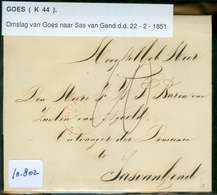 GOES ( K 44 ).
Omslag van Goes naar Sas van Gend d.d. 22 - 2 - 1851.
Den Heere
Baron van
Ontvanger der Domeinen
te
Sas van Gend
10.802